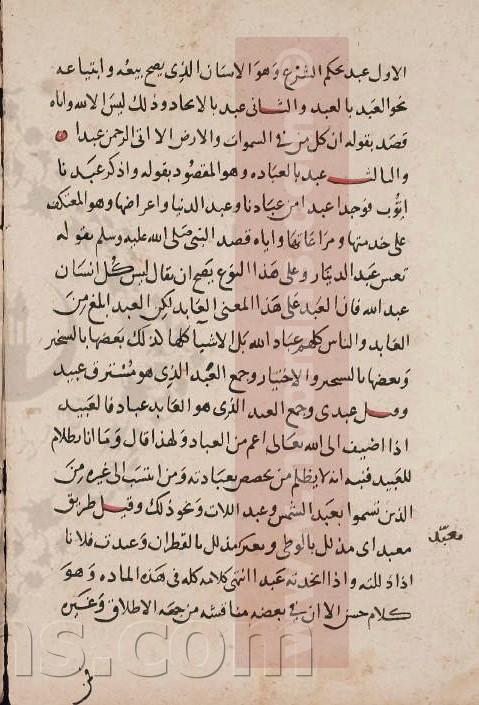 الاول عبد بحكم الشرع وهو الانسان الذى يصح بيعه وابتياعه
نحو العبد بالعبد والثانى عبد بالايجاد وذلك ليس الا لله واياه
قصد بقوله ان كل من فى السموات والارض الا اتى الرحمن عبدا
والثالث عبد بالعباده وهو المقصود بقوله واذكر عبدنا
ايوب فوجدا عبدا من عبادنا وعبد الدنيا واعراضها وهو المعتكف
على خدمتها ومراعاتها واياه قصد النبى صلى الله عليه وسلم بقوله
تعس عبد الدينار وعلى هذا النوع يصح ان يقال ليس كل انسان
عبد الله فان العبد على هذا المعنى العابد لكن العبد ابلغ من
العابد والناس كلهم عباد الله بل الاشيا كلها كذلك بعضها بالتسخير
وبعضها بالتسخير والاختيار وجمع العبد الذى هو مسترق عبيد
وقيل عبدى وجمع العبد الذى هو العابد عباد فالعبيد
اذا اضيف الى الله تعالى اعم من العباد ولهذا قال وما انا بظلام
للعبيد فنبه انه لا يظلم من تخصص بعبادته ومن انتسب الى غيره من
الذين تسموا بعبد الشمس وعبد اللات ونحو ذلك وقيل طريق
معبد اى مذلل بالوطى وبعير مذلل بالقطران وعبدت فلانا
معبّد
اذا ذللته واذا اتخذته عبدا انتهى كلامه كله فى هذه الماده وهو
كلام حسن الا ان فى بعضه مناقشه من جهه الاطلاق وغيره
ns.com